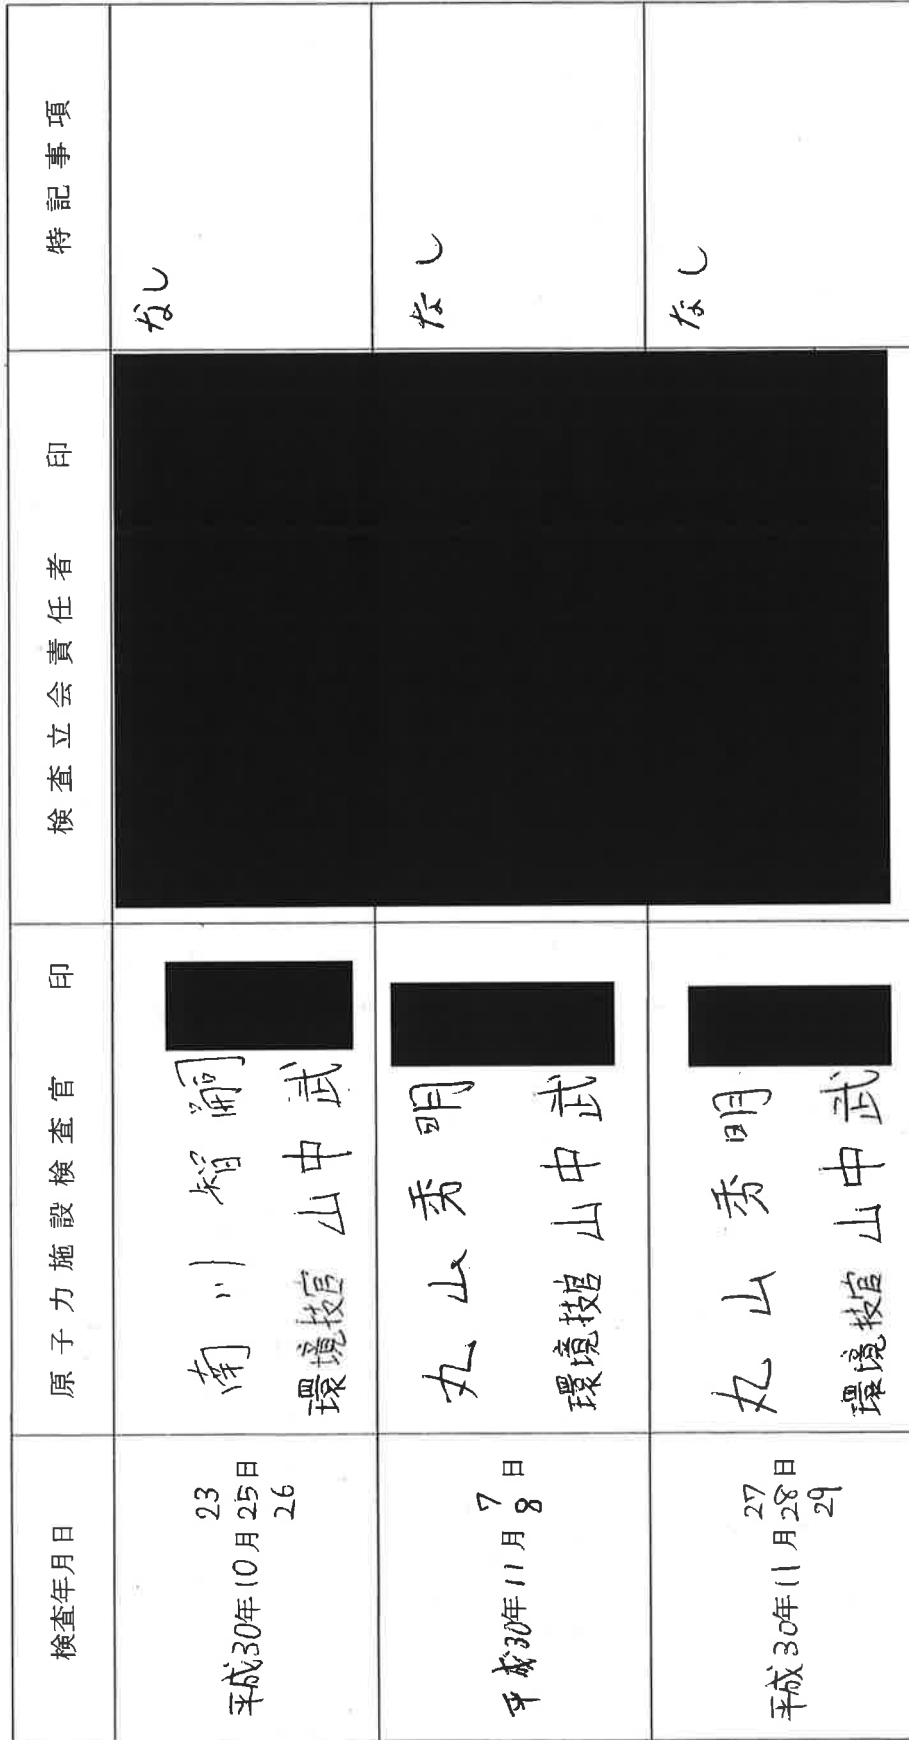 検査年月日
原子力施設検査官 印
検査立会責任者 印
特記事項
23
平成30年10月25日
26
南川智嗣
環境技官 山中武
なし
7
平成30年11月 日
8
丸山秀明
環境技官 山中武
なし
27
平成30年11月28日
29
丸山秀明
環境技官 山中武
なし